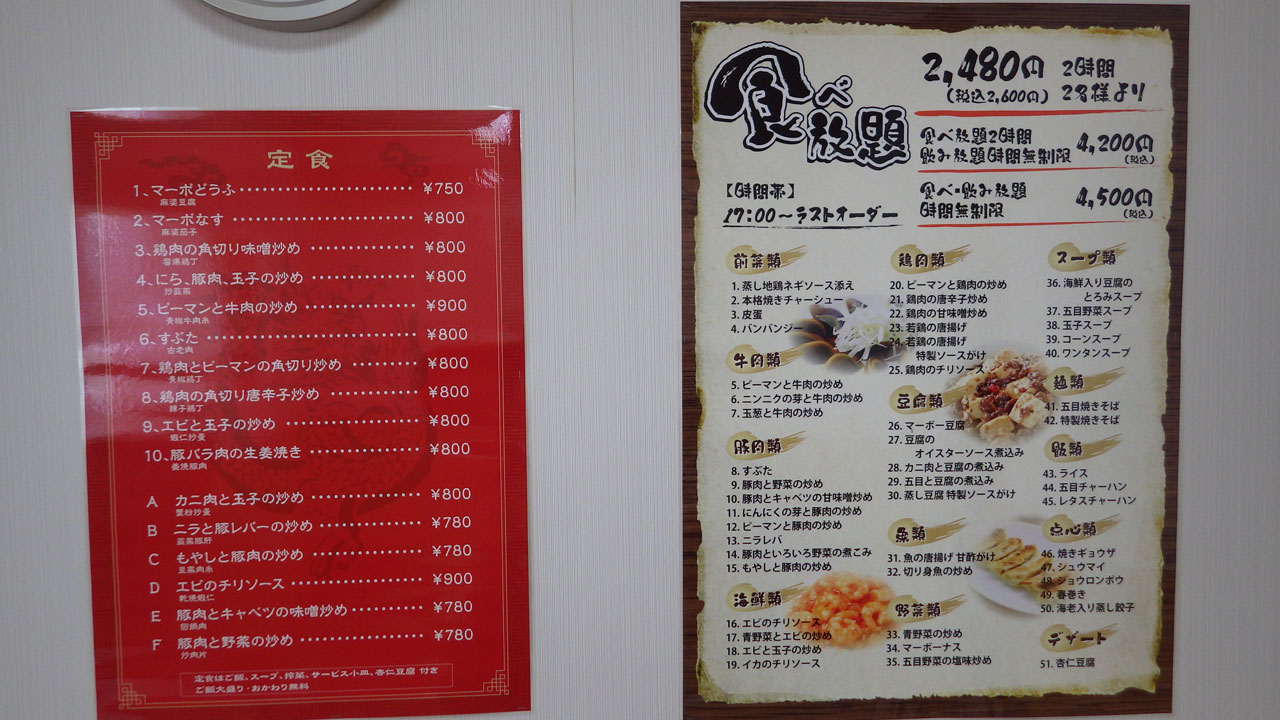 定食
1、マーボどうふ ¥750
麻婆豆腐
2、マーボなす ¥800
麻婆茄子
3、鶏肉の角切り味噌炒め ¥800
醤爆鶏丁
4、にら、豚肉、玉子の炒め ¥800
炒韮菜
5、ピーマンと牛肉の炒め ¥900
青椒牛肉糸
6、すぶた ¥800
古老肉
7、鶏肉とピーマンの角切り炒め ¥800
青椒鶏丁
8、鶏肉の角切り唐辛子炒め ¥800
辣子鶏丁
9、エビと玉子の炒め ¥800
蝦仁炒蛋
10、豚バラ肉の生姜焼き ¥800
姜焼豚肉
A カニ肉と玉子の炒め ¥800
蟹粉炒蛋
B ニラと豚レバーの炒め ¥780
韮菜豚肝
C もやしと豚肉の炒め ¥780
豆菜肉糸
D エビのチリソース ¥900
乾焼蝦仁
E 豚肉とキャベツの味噌炒め ¥780
回鍋肉
F 豚肉と野菜の炒め ¥780
炒肉片
定食はご飯、スープ、搾菜、サービス小皿、杏仁豆腐 付き
ご飯大盛り・おかわり無料
食べ放題
2,480円 2時間
(税込2,600円) 2名様より
食べ放題2時間
飲み放題時間無制限 4,200円
(税込)
食べ・飲み放題
時間無制限 4,500円
(税込)
【時間帯】
17:00〜ラストオーダー
前菜類
1. 蒸し地鶏ネギソース添え
2. 本格焼きチャーシュー
3. 皮蛋
4. バンバンジー
牛肉類
5. ピーマンと牛肉の炒め
6. ニンニクの芽と牛肉の炒め
7. 玉葱と牛肉の炒め
豚肉類
8. すぶた
9. 豚肉と野菜の炒め
10. 豚肉とキャベツの甘味噌炒め
11. にんにくの芽と豚肉の炒め
12. ピーマンと豚肉の炒め
13. ニラレバ
14. 豚肉といろいろ野菜の煮こみ
15. もやしと豚肉の炒め
海鮮類
16. エビのチリソース
17. 青野菜とエビの炒め
18. エビと玉子の炒め
19. イカのチリソース
鶏肉類
20. ピーマンと鶏肉の炒め
21. 鶏肉の唐辛子炒め
22. 鶏肉の甘味噌炒め
23. 若鶏の唐揚げ
24. 若鶏の唐揚げ
特製ソースがけ
25. 鶏肉のチリソース
豆腐類
26. マーボー豆腐
27. 豆腐の
オイスターソース煮込み
28. カニ肉と豆腐の煮込み
29. 五目と豆腐の煮込み
30. 蒸し豆腐 特製ソースがけ
魚類
31. 魚の唐揚げ 甘酢がけ
32. 切り身魚の炒め
野菜類
33. 青野菜の炒め
34. マーボーナス
35. 五目野菜の塩味炒め
スープ類
36. 海鮮入り豆腐の
とろみスープ
37. 五目野菜スープ
38. 玉子スープ
39. コーンスープ
40. ワンタンスープ
麺類
41. 五目焼きそば
42. 特製焼きそば
飯類
43. ライス
44. 五目チャーハン
45. レタスチャーハン
点心類
46. 焼きギョウザ
47. シュウマイ
48. ショウロンポウ
49. 春巻き
50. 海老入り蒸し餃子
デザート
51. 杏仁豆腐